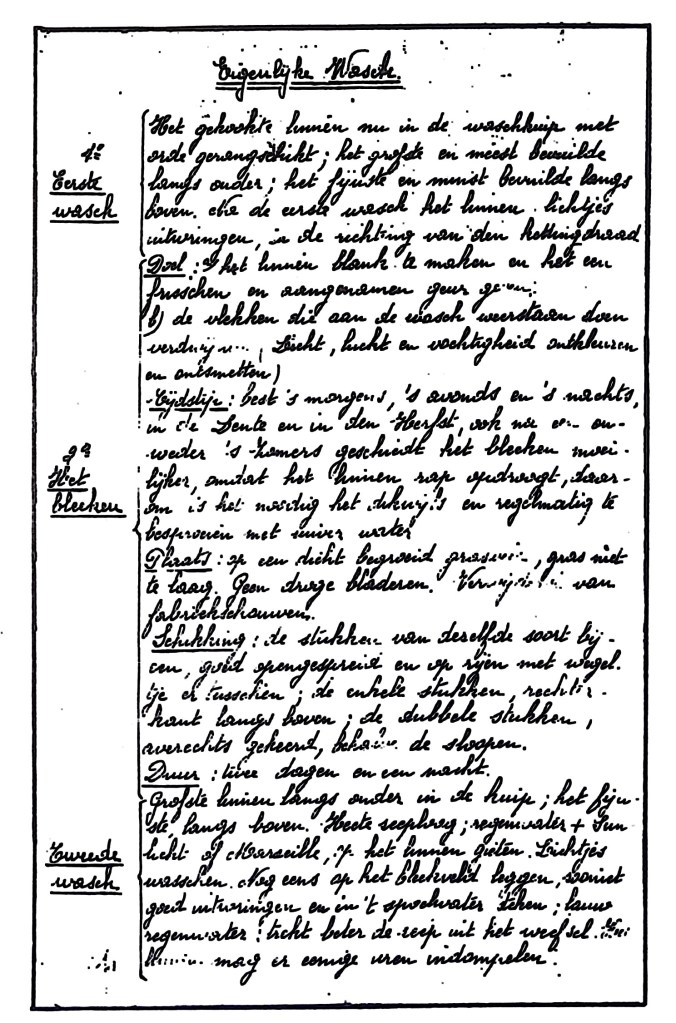 Eigenlijke Wasch.
1e
Eerste
wasch
Het gekookte linnen nu in de waschkuip met
orde gerangschikt; het grofste en meest bevuilde
langs onder; het fijnste en minst bevuilde langs
boven. Na de eerste wasch het linnen lichtjes
uitwringen, in de richting van den kettingdraad
2e
Het
bleeken
Doel: het linnen blank te maken en het een
frisschen en aangenamen geur geven;
b) de vlekken die aan de wasch weerstaan doen
verdwijnen, (Licht, lucht en vochtigheid ontkleuren
en ontsmetten)
Tijdstip: best 's morgens, 's avonds en 's nachts,
in de Lente en in den Herfst, ook na on-
weder 's Zomers geschiedt het bleeken moei-
lijker, omdat het linnen rap opdroogt, daar-
om is het noodig het dikwijls en regelmatig te
besproeien met zuiver water
Plaats: op een dicht begroeid, gras niet
te laag. Geen droge bladeren. van
fabriekschouwen.
Schikking: de stukken van dezelfde soort bij-
een, goed opengespreid en op rijen met wegel-
tje er tusschen; de enkele stukken, rechter-
kant langs boven; de dubbele stukken,
averechts gekeerd, behalve de sloopen.
Duur: twee dagen en een nacht.
Tweede
wasch
Grofste linnen langs onder in de kuip; het fijn-
ste, langs boven. Heete zeeploog; regenwater + Sun
licht of Marseille, op het linnen gieten. Lichtjes
wasschen. Nog eens op het bleekveld leggen, daarna
goed uitwringen en in 't spoelwater steken; lauw
regenwater: trekt beter de zeep uit het weefsel. Het
linnen mag er eenige uren indompelen.